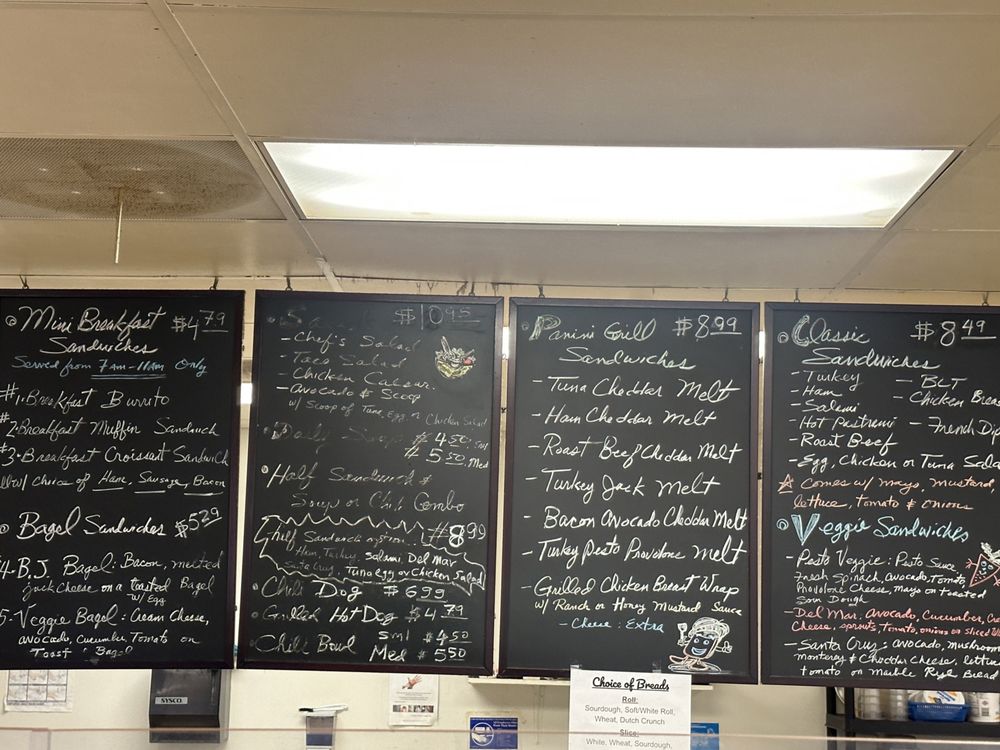 Mini Breakfast $4.79
Sandwiches
Served from 7am-11am Only
#1. Breakfast Burrito
#2. Breakfast Muffin Sandwich
#3. Breakfast Croissant Sandwich
w/ choice of Ham, Sausage, Bacon
Bagel Sandwiches $5.29
4. B.J. Bagel: Bacon, melted
jack cheese on a toasted Bagel
w/ Egg
5. Veggie Bagel: Cream Cheese,
avocado, Cucumber, Tomato on
Toast Bagel
$10.95
- Chef's Salad
- Taco Salad
- Chicken Caesar
- Avocado & Scoop
w/ Scoop of Tuna, Egg or Chicken Salad
Daily Soup $4.50 Sml
$5.50 Med
Half Sandwich &
Soup or Chili Combo
Half Sandwich option: $8.99
Ham, Turkey, Salami, Del Mar
Santa Cruz, Tuna, Egg or Chicken Salad
Chili Dog $6.99
Grilled Hot Dog $4.79
Chili Bowl Sml $4.50
Med $5.50
Panini Grill $8.99
Sandwiches
- Tuna Cheddar Melt
- Ham Cheddar Melt
- Roast Beef Cheddar Melt
- Turkey Jack Melt
- Bacon Avocado Cheddar Melt
- Turkey Pesto Provolone Melt
- Grilled Chicken Breast Wrap
w/ Ranch or Honey Mustard Sauce
- Cheese: Extra
Classic $8.49
Sandwiches
- Turkey
- Ham
- Salami
- Hot Pastrami
- Roast Beef
- BLT
- Chicken Breas
- French Dip
- Egg, Chicken or Tuna Salad
Comes w/ mayo, mustard,
lettuce, Tomato & onions
Veggie Sandwiches
- Pesto Veggie: Pesto Sauce
Fresh Spinach, Avocado, Tomato,
Provolone Cheese, Mayo on toasted
Sour Dough
- Del Mar, avocado, Cucumber,
Cheese, sprouts, Tomato, onions on Sliced
- Santa Cruz: avocado, mushroom
monterey & Cheddar Cheese, lettuc
tomato on Marble Rye Bread
Choice of Breads
Roll:
Sourdough, Soft/White Roll,
Wheat, Dutch Crunch
Slice:
White, Wheat, Sourdough,
SYSCO